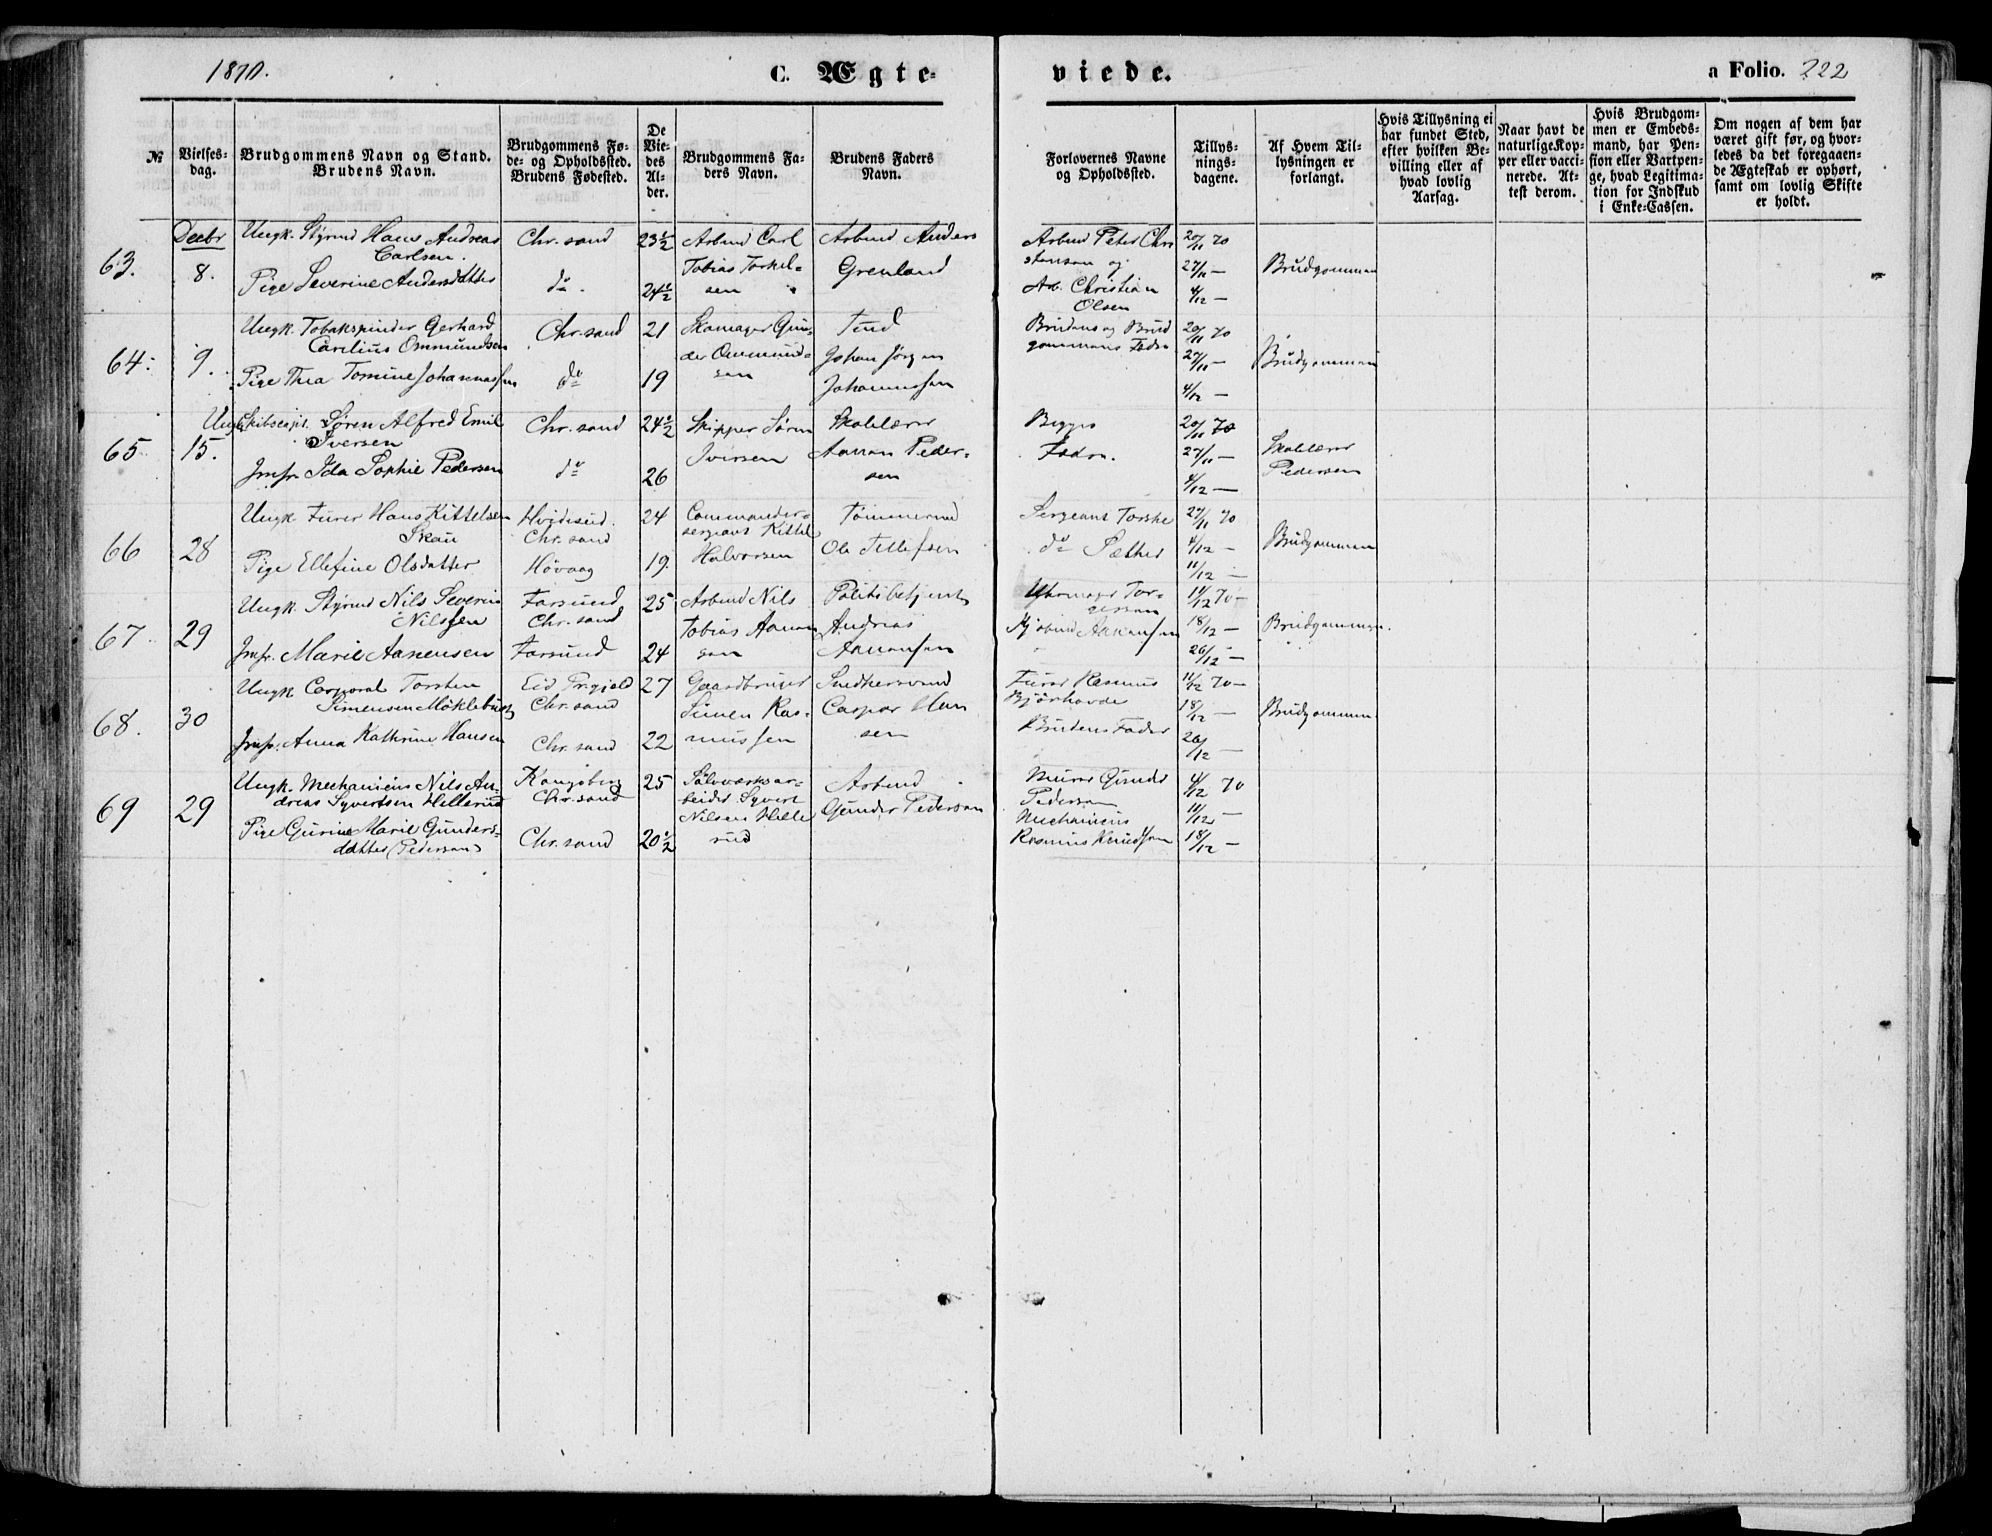 1870.
C. Ægte-
viede.
a Folio. 222
№
Vielses-
dag.
Brudgommens Navn og Stand.
Brudens Navn.
Brudgommens Fø-
de- og Opholdssted.
Brudens Fødested.
De
Vie-
des
Al-
der.
Brudgommens Fa-
ders Navn.
Brudens Faders
Navn.
Forlovernes Navne
og Opholdssted.
Tillys-
nings-
dagene.
Af Hvem Til-
lysningen er
forlangt.
Hvis Tillysning ei
har fundet Sted,
efter hvilken Be-
villing eller af
hvad lovlig
Aarsag.
Naar havt de
naturlige Kop-
per eller vacci-
nerede. At-
test derom.
Hvis Brudgom-
men er Embeds-
mand, har Pen-
sion eller Vartpen-
ge, hvad Legitima-
tion for Indskud
i Enke-Cassen.
Om nogen af dem har
været gift før, og hvor-
ledes da det foregaaen-
de Ægteskab er ophørt,
samt om lovlig Skifte
er holdt.
63.
Decbr
8.
Ungk. Styrmd Hans Andreas
Carlsen.
Pige Severine Andersdatter
Chr.sand
do.
23½
24½
Arbmd Carl
Tobias Torkel-
sen
Arbmd Anders
Grenland
Arbmd Peter Chri
stensen og
Arb. Christian
Olsen
20/11 70
27/11 —
4/12 —
Brudgommen
64.
9.
Ungk. Tobakspinder Gerhard
Carelius Ommundsen
Pige Thea Tomine Johannessen
Chr.sand
do
21
19
Skomager Gun-
der Ommund-
sen
Johan Jørgen
Johannessen
Brudens og Brud
gommens Fader
20/11 70
27/11 —
4/12 —
Brudgommen
65
15.
Ungk. Skibscapt. Søren Alfred Emil
Iversen
Jmfr. Ida Sophie Pedersen
Chr.sand
do
24½
26
Skipper Søren
Iversen
Skolelærer
Aanon Peder-
sen
Begges
Fædre.
20/11 70
27/11 —
4/12 —
Skolelærer
Pedersen
66
28
Ungk. Furer Hans Kittelsen
Skau
Pige Ellefine Olsdatter
Hvidesud.
Chr.sand
Høvaag
24
19.
Commander-
sergeant Kittel
Halvorsen
Tømmermd
Ole Tellefsen
Sergeant Torske
do Sæther
27/11 70
4/12 —
11/12 —
Brudgommen
67
29
Ungk. Styrmd Nils Severin
Nilssen
Jmfr. Marie Aanensen
Farsund
Chr.sand
Farsund
25
24
Arbmd Nils
Tobias Aanon
sen
Politibetjent
Andreas
Aanensen
Uhrmager Tor-
gersen
11/12 70 —
18/12 —
26/12 —
Brudgommen.
68.
30
Ungk. Corporal Torsten
Simensen Møklebust
Jmfr. Anna Kathrine Hansen
Eid Prgjæld
Chr.sand
Chr.sand
27
22
Gaardbruger
Simen Ras-
mussen
Snedkersvend
Caspar Han
sen
Furer Rasmus
Bjørhovde
Brudens Fader
11/12 70 —
18/12 —
26/12 —
Brudgommen
69
29
Ungk. Mechanicus Nils An-
dreas Syvertsen Hillerud
Pige Gurine Marie Gunders-
datter (Pedersen)
Kongsberg
Chr.sand
Chr.sand
25
20½
Sølvværksar-
beider Syvert
Nilsen Hille
rud
Arbmd
Gunder Pedersen
Murer Gunder
Pedersen
Mechanicus
Rasmus Knudsen
4/12 70
11/12 —
18/12 —